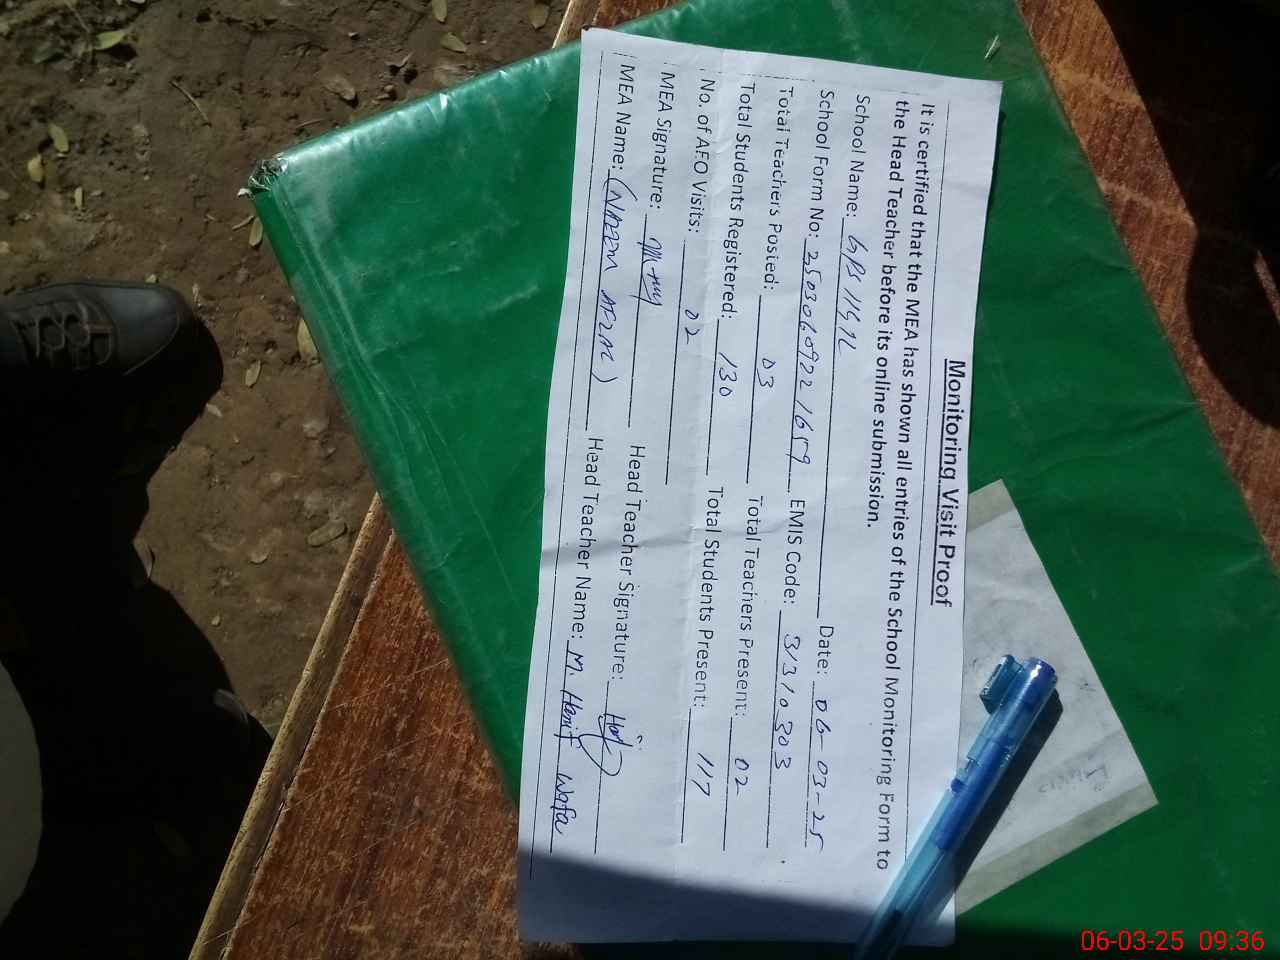 Monitoring Visit Proof
It is certified that the MEA has shown all entries of the School Monitoring Form to
the Head Teacher before its online submission.
School Name: GPS 114/1L Date: 06-03-25
School Form No: 2503060922 1659 EMIS Code: 31310303
Total Teachers Posted: 03 Total Teachers Present: 02
Total Students Registered: 130 Total Students Present: 117
No. of AEO Visits: 02
MEA Signature: Head Teacher Signature:
MEA Name: (NAEEM AFZAL) Head Teacher Name: M. Hanif Wafa
06-03-25 09:36